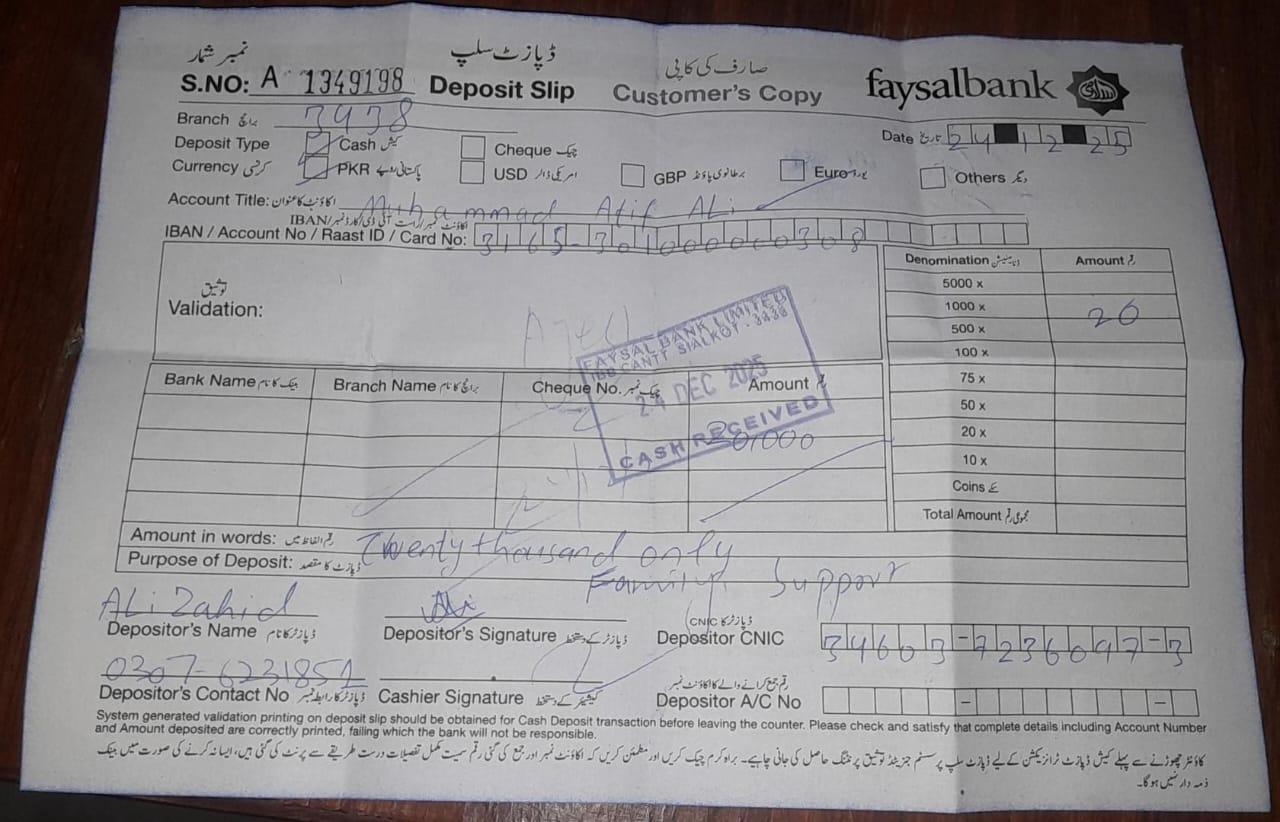 نمبر شمار ڈپازٹ سلپ صارف کی کاپی
S.NO: A 1349198 Deposit Slip Customer's Copy faysalbank
Branch برانچ 3438
Date تاریخ 24 12 25
Deposit Type Cash کیش Cheque چیک
Currency کرنسی PKR پاکستانی روپے USD امریکی ڈالر GBP برطانوی پاؤنڈ Euro یورو Others دیگر
Account Title: اکاؤنٹ کا عنوان Muhammad Atif Ali
IBAN / Account No / Raast ID / Card No: 3165-3010000000308
توثیق
Validation:
Denomination Amount رقم
5000 x
1000 x 20
500 x
100 x
75 x
50 x
20 x
10 x
Coins سکے
Total Amount مجموعی رقم
FAYSAL BANK LIMITED
IBB CANTT SIALKOT - 3438
24 DEC 2025
CASH RECEIVED
Bank Name بینک کا نام Branch Name برانچ کا نام Cheque No. چیک نمبر Amount رقم
20,000
Amount in words: رقم الفاظ میں Twenty thousand only
Purpose of Deposit: ڈپازٹ کا مقصد Family Support
ALi Zahid
Depositor's Name ڈپازٹر کا نام Depositor's Signature ڈپازٹر کے دستخط Depositor CNIC ڈپازٹر کا CNIC 34603-7236097-3
0307-6231851
Depositor's Contact No ڈپازٹر کا رابطہ نمبر Cashier Signature کیشیئر کے دستخط Depositor A/C No رقم جمع کرانے والے کا اکاؤنٹ نمبر
System generated validation printing on deposit slip should be obtained for Cash Deposit transaction before leaving the counter. Please check and satisfy that complete details including Account Number
and Amount deposited are correctly printed, failing which the bank will not be responsible.
کاؤنٹر چھوڑنے سے پہلے کیش ڈپازٹ ٹرانزیکشن کے لیے ڈپازٹ سلپ پر سسٹم جنریٹڈ توثیق پرنٹنگ حاصل کی جانی چاہیے۔ براہ کرم چیک کریں اور مطمئن کریں کہ اکاؤنٹ نمبر اور جمع کی گئی رقم سمیت مکمل تفصیلات درست طریقے سے پرنٹ کی گئی ہیں، ایسا نہ کرنے کی صورت میں بینک
ذمہ دار نہیں ہوگا۔